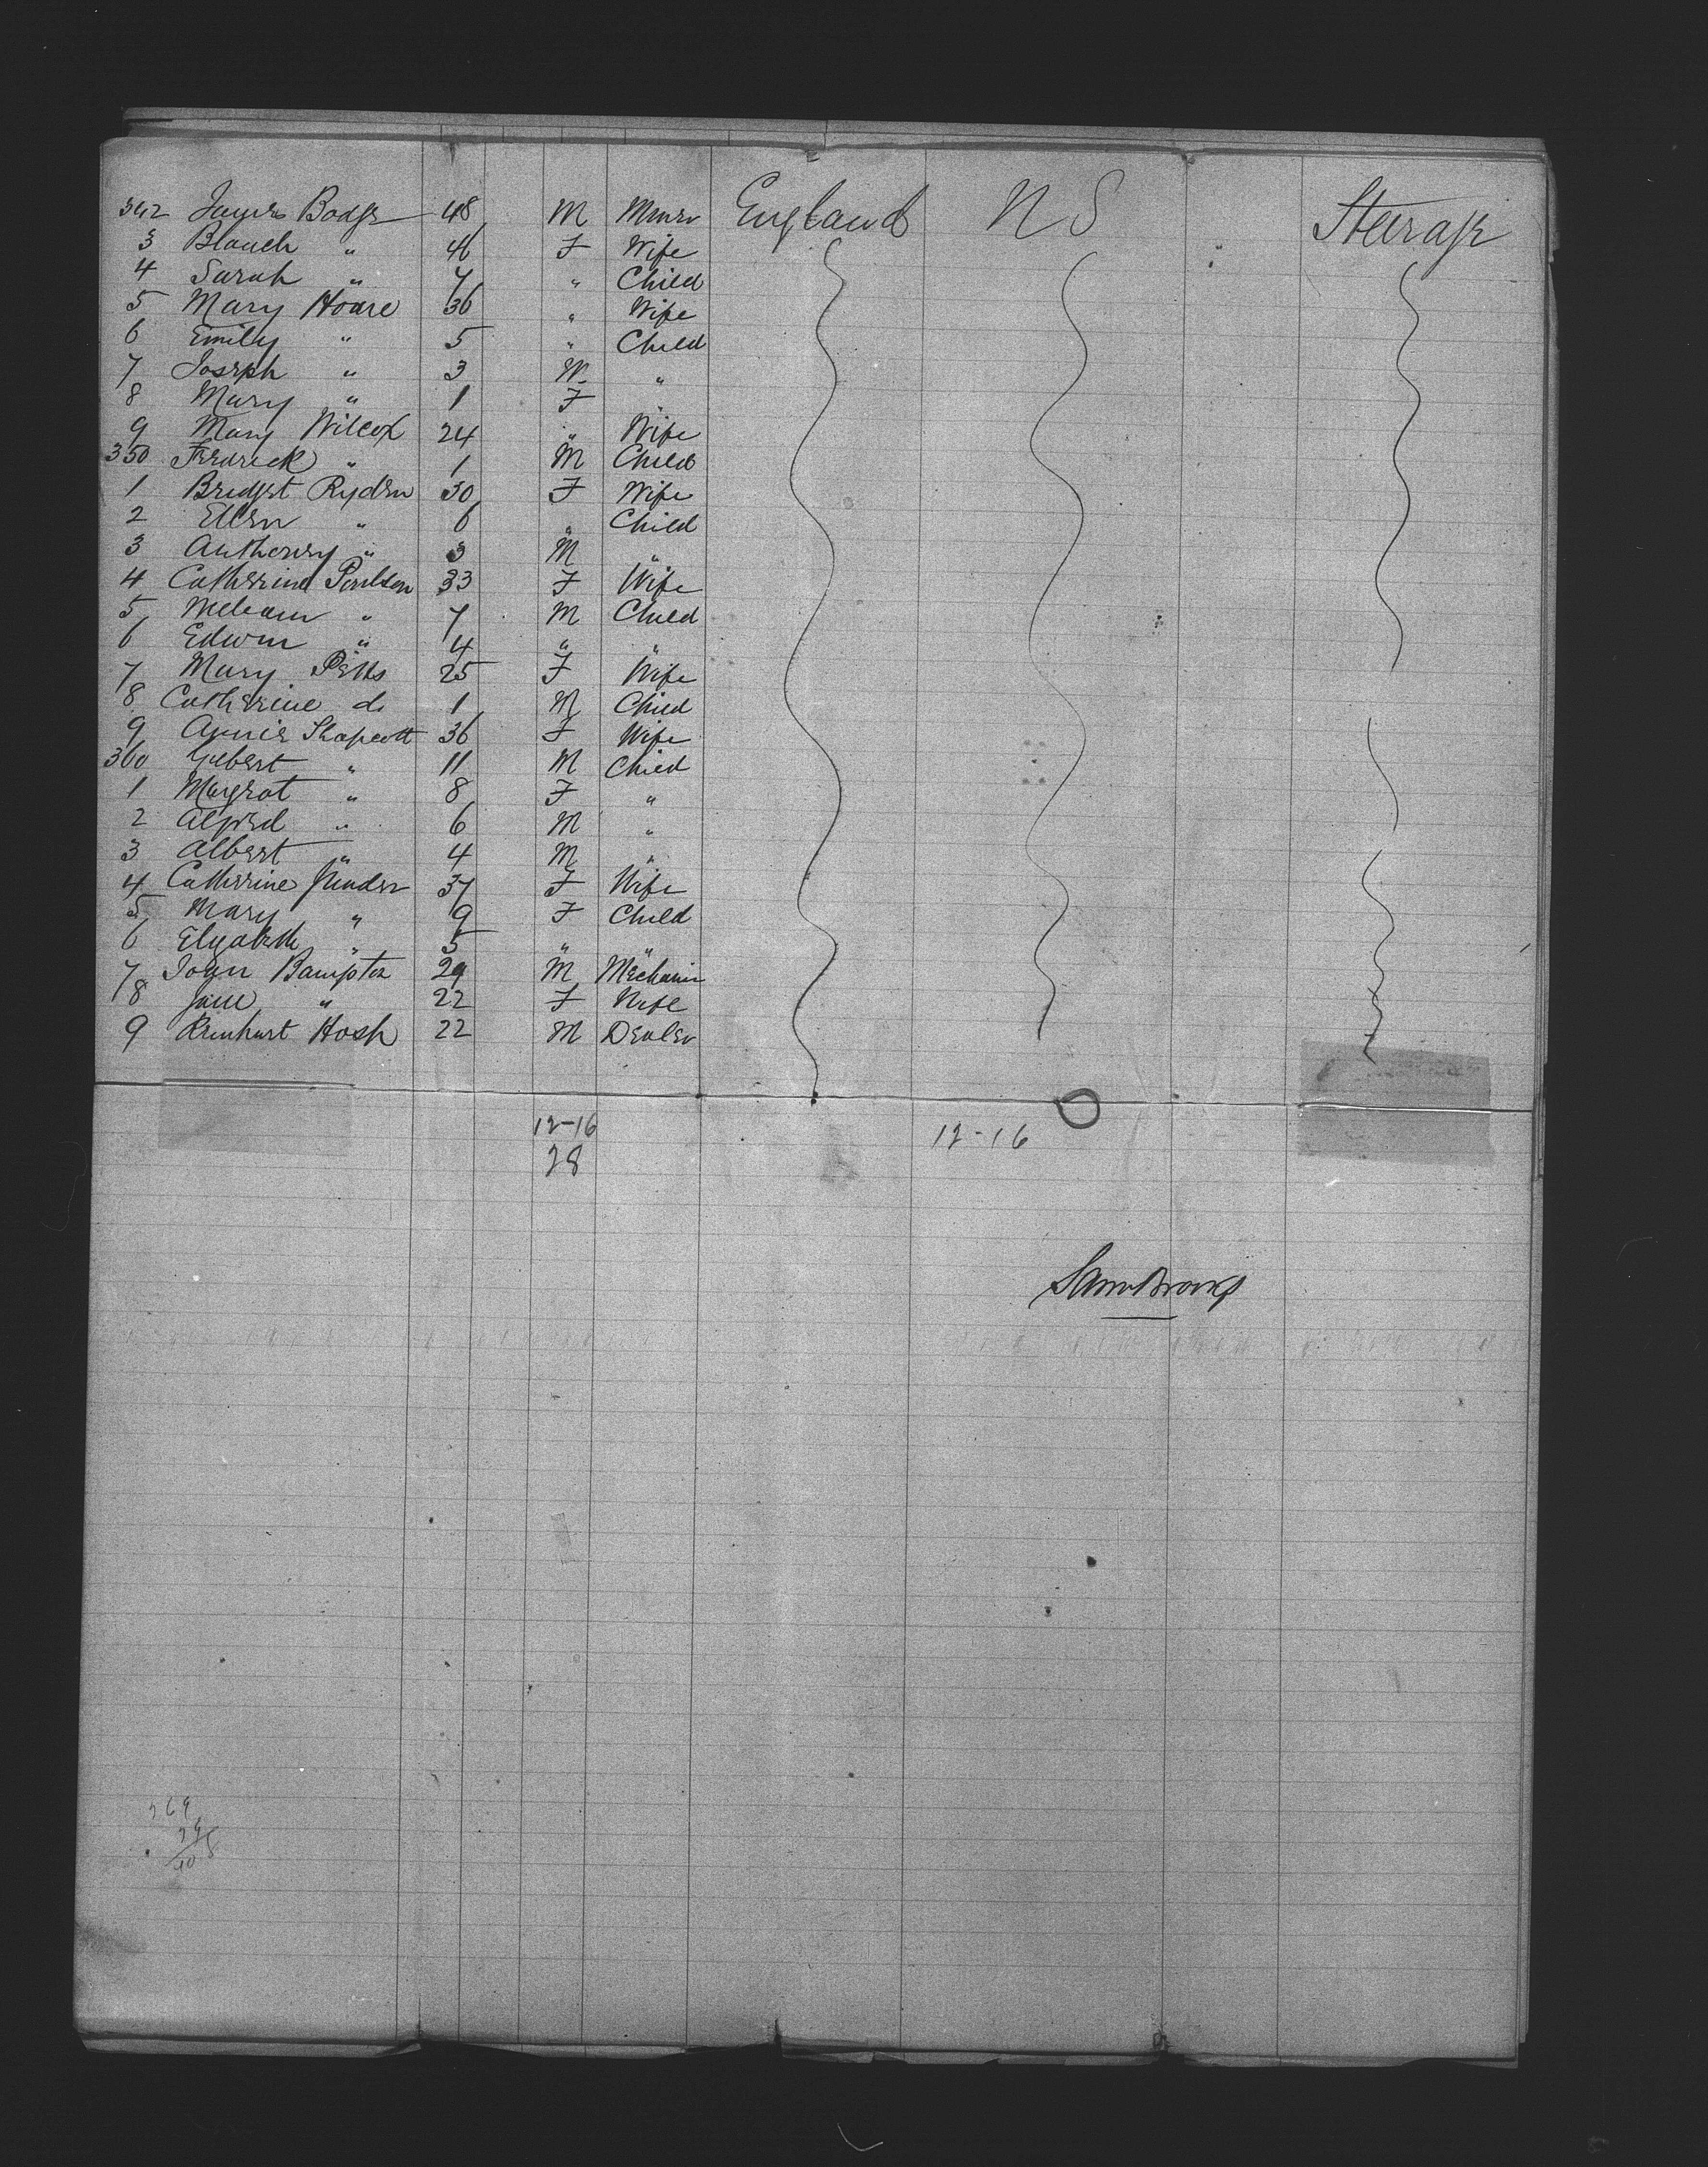 342 James Bodge 48 M Miner England N S Steerage
3 Blanch " 46 F Wife
4 Sarah " 7 " Child
5 Mary Hoare 36 " Wife
6 Emily " 5 " Child
7 Joseph " 3 M "
8 Mary " 1 F "
9 Mary Wilcox 24 " Wife
350 Fredrick " 1 M Child
1 Bridget Ryden 30 F Wife
2 Ellen " 6 " Child
3 Anthoney " 3 M "
4 Catherine Poulson 33 F Wife
5 William " 7 M Child
6 Edwin " 4 " "
7 Mary Pitts 25 F Wife
8 Catherine do 1 M Child
9 Annie Shapcott 36 F Wife
360 Gilbert " 11 M Child
1 Magrat " 8 F "
2 Alfred " 6 M "
3 Albert " 4 M "
4 Catherine 37 F Wife
5 Mary " 9 F Child
6 Elyabeth " 5 " "
7 John Bampton 29 M Mechanic
8 Jane " 22 F Wife
9 Reinhart Hosh 22 M Dealer
12-16 12-16
28